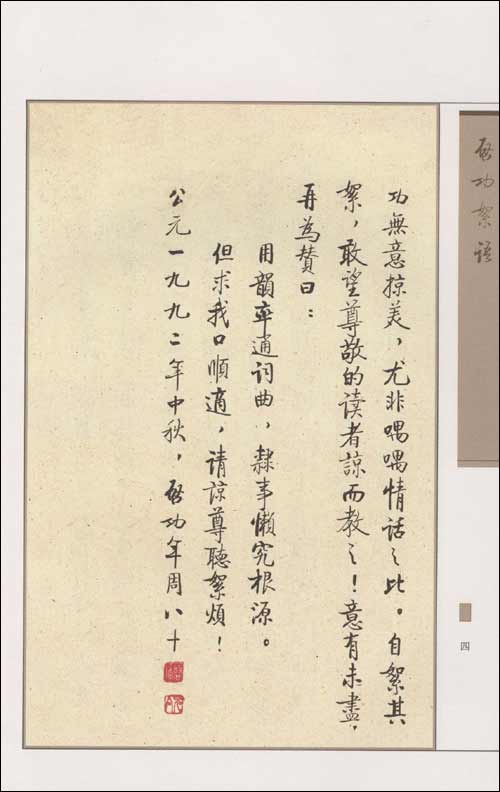 功無意掠美，尤非喁喁情話之比。自絮其
絮，敢望尊敬的读者諒而教之！意有未盡，
再為贊曰：
用韻率通词曲，隸事懒究根源。
但求我口順適，请諒尊聽絮煩！
公元一九九二年中秋，啟功年周八十
啟功絮语
四